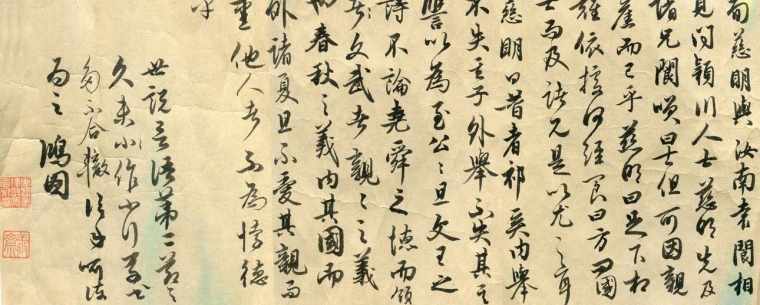 荀慈明與汝南袁閬相
見問潁川人士慈明先及
諸兄閬咲曰士但可因親
舊而已乎慈明曰足下相
難依據何經閬曰方問國
士而及諸兄是以尤之耳
慈明曰昔者祁奚內舉
不失其子外舉不失其
讎以為至公〻旦文王之
詩不論堯舜之德而頌
文武者親〻之義
也春秋之義內其國而
外諸夏且不愛其親而
愛他人者不為悖德
乎
世說言語第二
久未小作小行草書
鴻圖